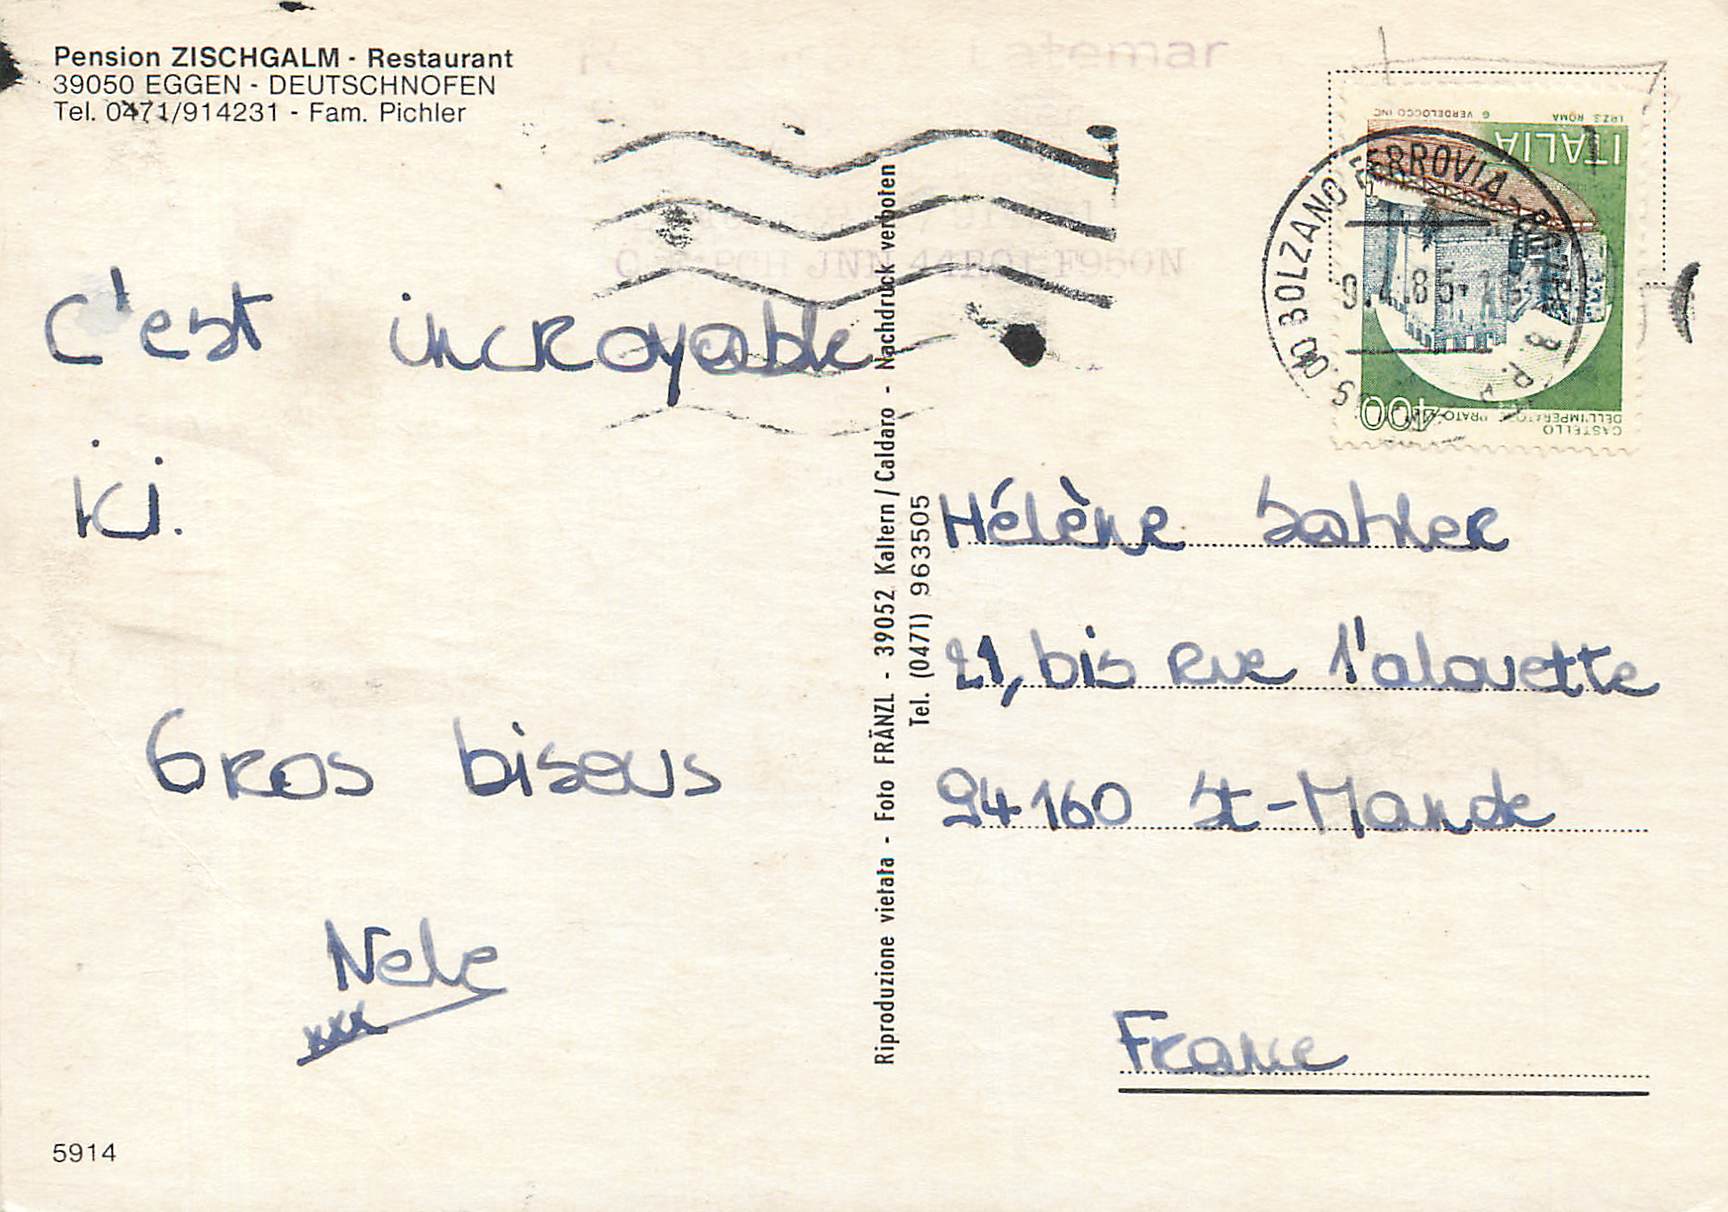 Pension ZISCHGALM - Restaurant
39050 EGGEN - DEUTSCHNOFEN
Tel. 0471/914231 - Fam. Pichler
C'est incroyable
ici.
Gros bisous
Nele
xxx
5914
Riproduzione vietata - Foto FRÄNZL - 39052 Kaltern / Caldaro - Nachdruck verboten
Tel. (0471) 963505
Latemar
BOLZANO FERROVIA
I.P.Z.S. ROMA
G. VERDELOCCO INC.
ITALIA
400
CASTELLO
DELL'IMPERATORE PRATO
Hélène
21, bis rue l'alouette
94160 St-Mande
France